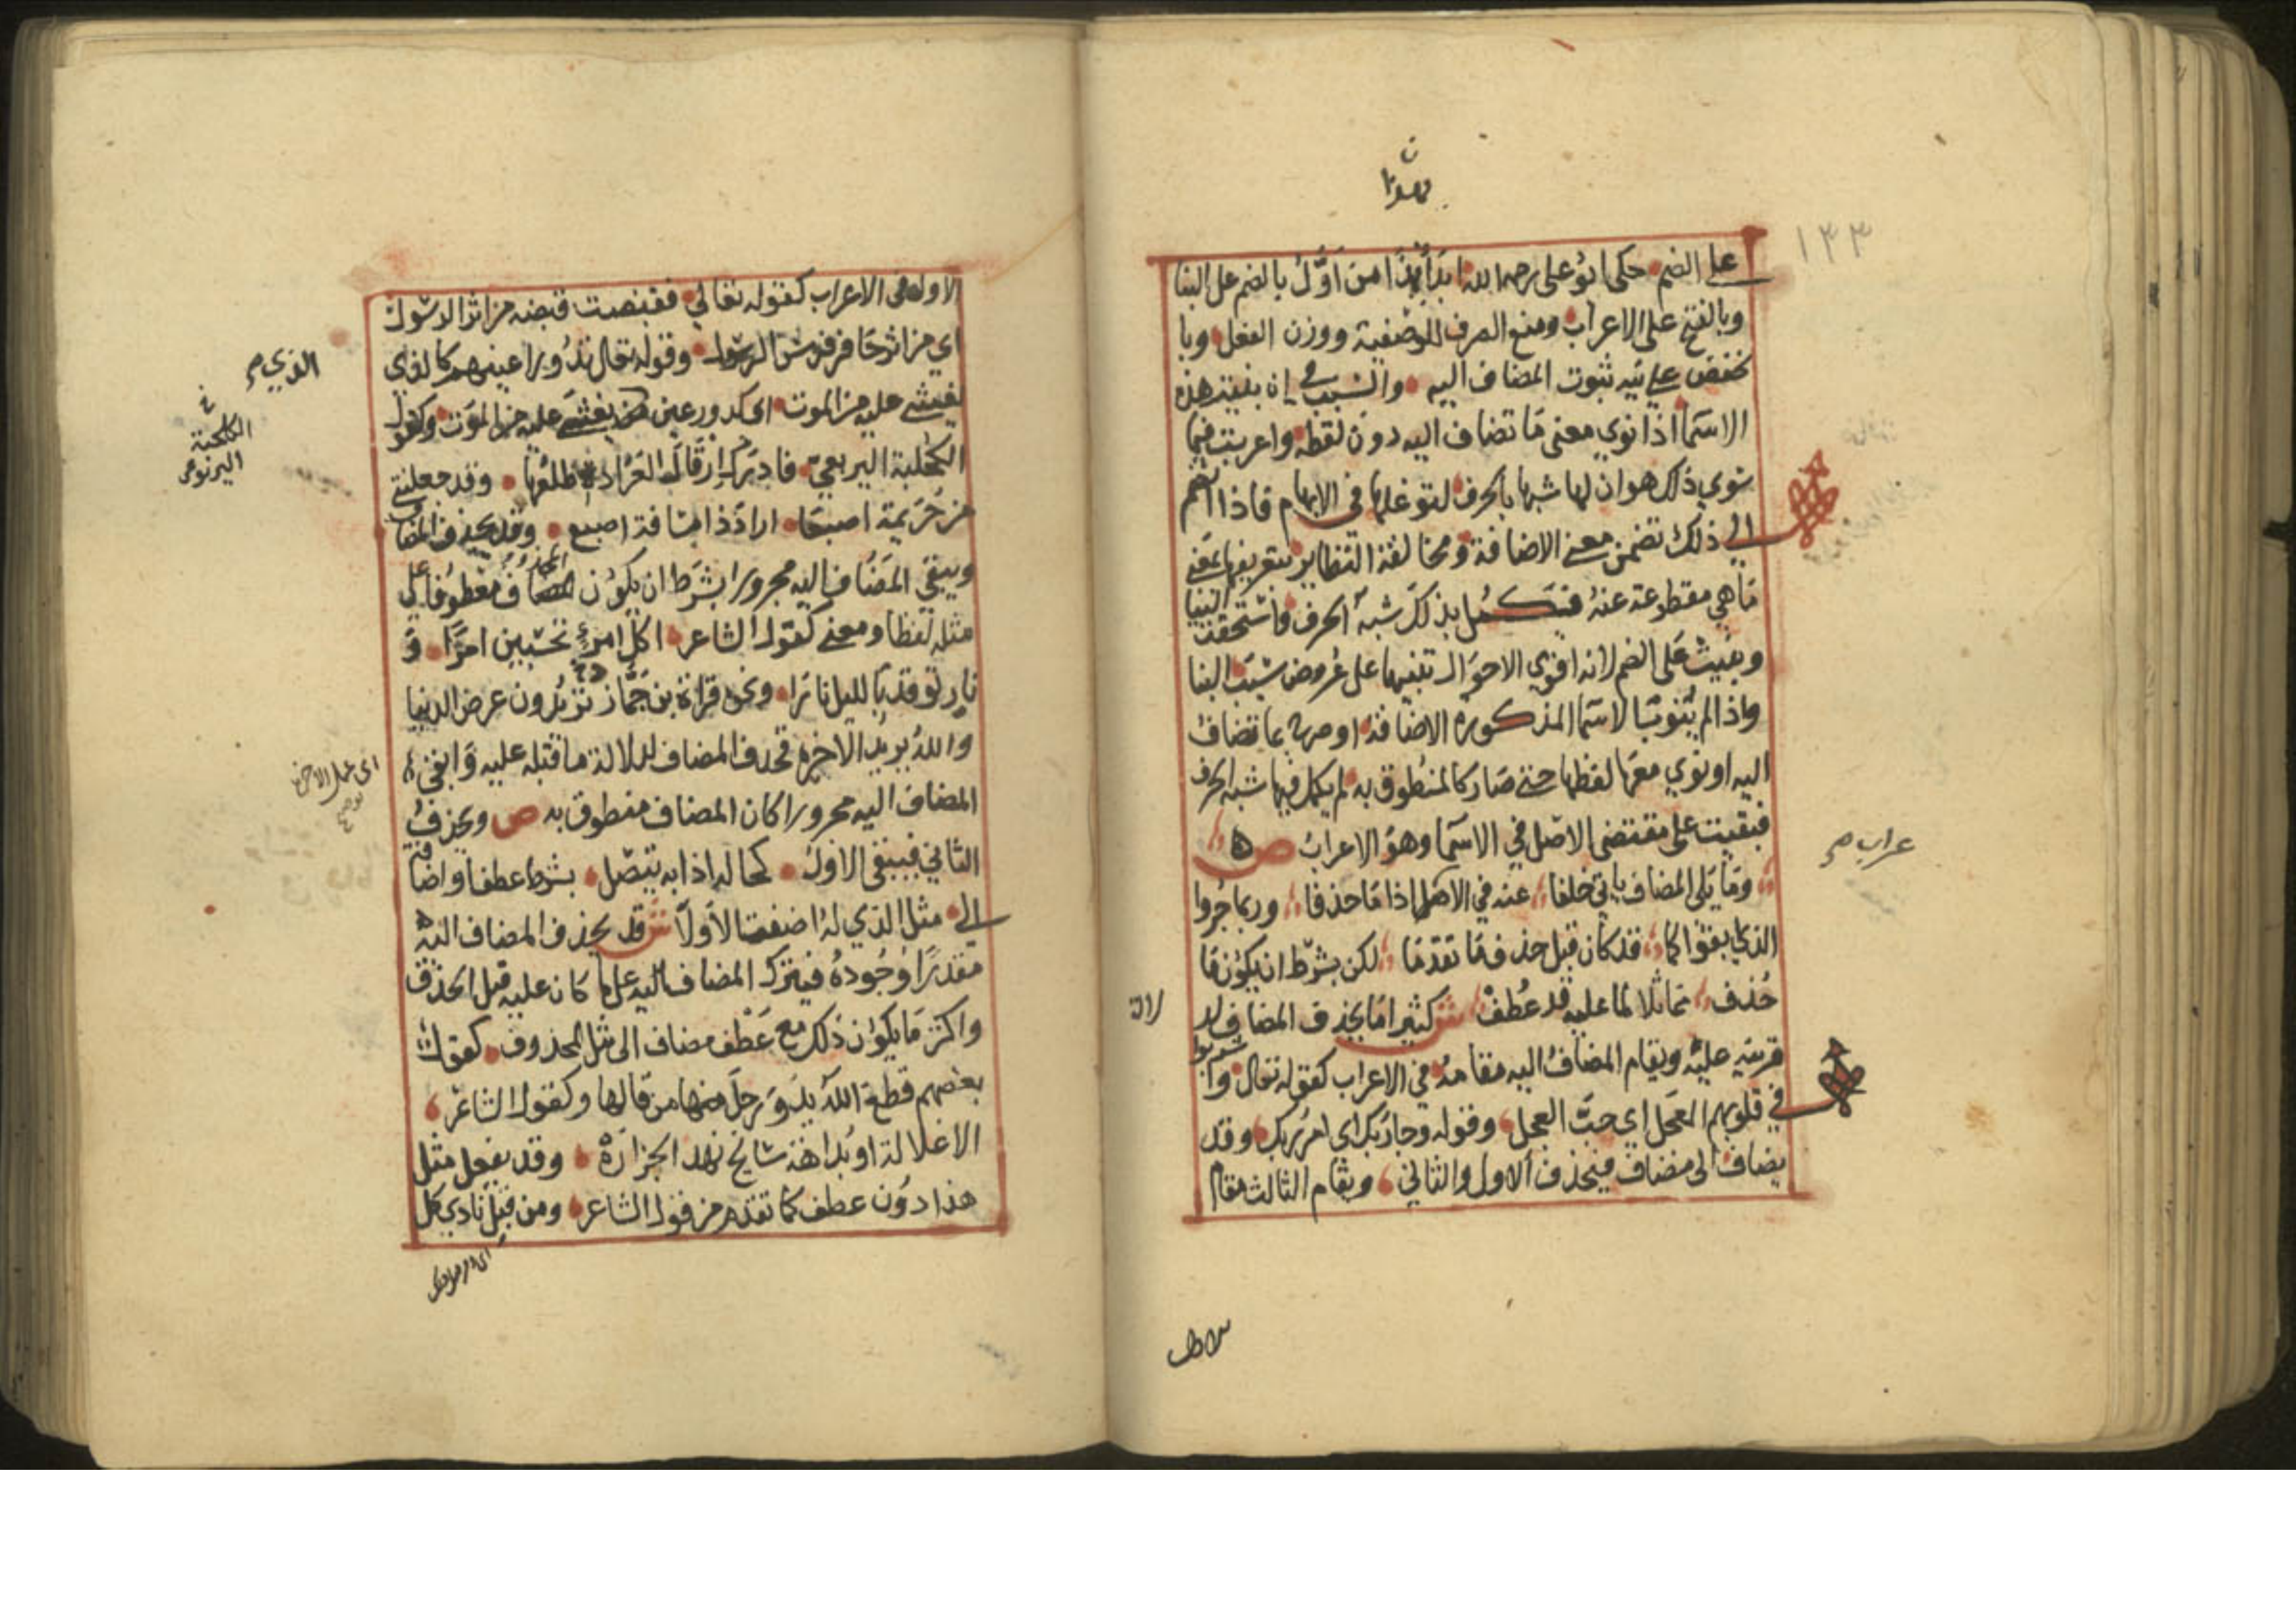 بهذا
ن
١٣٣
على الضم حكى ابو على رحمه الله ابدأ بهذا من اَوَّلُ بالضم على البنا
وبالفتح على الاعراب ومنع الصرف للوصفية ووزن الفعل وبا
لخفض على نية ثبوت المضاف اليه والسبب فى ان بنيت هذه
الاسما اذا نوي معنى مَا تضاف اليه دون لفظه واعربت فيما
سوي ذلك هو ان لها شبها بالحرف لتوغلها في الابهام فاذا انضم
الي ذلك تضمن معنى الاضافة ومخالفة النظاير بتعريفها بمعنى
مَا هي مقطوعة عنهُ فتكمل بذلك شبه الحرف فاستحقت البنا
وبنيت على الضم لانه اقوى الاحوال تنبيها على عُروض سبَب البنا
واذا لم يُنوَ بالاسما المذكورة الاضافة او صرح بما تضاف
اليه او نوي معها لفظها حتى صَار كالمنطوق به لم يكمل فيها شبه الحرف
فبقيت على مقتضى الاصل في الاسما وهو الاعرابُ ص
وما يَلي المضاف ياتي خلفا عنه في الاعراب اذا مَا حذفا وربما جُروا
عراب صح
الذي ابقوا كما قد كان قبل حذف مَا تقدمَا لكن بشرط ان يكون مَا
حُذف مماثلا لما عليه قد عُطف ش كثيرا مَا يحذف المضاف لد
لالة
قرينه عليه ويقام المضافُ اليه مقامهُ في الاعراب كقوله تعالى وا شربوا
في قلوبهم العجل اي حبَّ العجل وقوله وجا ربك اى امرُ ربك وقد
يضاف الى مضاف فيحذف الاول والثاني ويقام الثالث مقام
الاول فى الاعراب كقوله تعالي فقبضت قبضه من اثر الرسول
اي من اثر حَافر فرس الرسول وقوله تعالى تدُور اعينهم كالذي
الذي صح
يغشى عليه من الموت اى كدور عين يغشى عليه من الموت وكقول
الكلحبة اليربوعى
الكحلبة اليربعيّ فادرك ارقال العَرَادة ظلعُها وقد جعلتنى
من حُزيمة اصبعَا ارادَ ذا مسَافة اصبع وقد يحذف المضاف
ويبقي المضَاف اليه مجرورا بشرط ان يكوُن المضافُ معطوفا على
مثله لفظا ومعنى كقول الشاعر اكل امرءٍ تحسبين امرًا وَ
نارٍ توقد بالليل نارَا ونحو قراة بن جَمَّاز تريدُون عرض الدنيا
واللهُ يريد الاخرةِ فحذف المضاف لدلالة ما قبله عليه وَابقي
اى عمل الاخرة
المضاف اليه مجرورا كان المضاف منطوق به ص ويحذفُ
الثاني فيبقى الاول كحاله اذا به يتصل بشرط عطف واضافة
الى مثل الذي لهُ اضفت الاَولا ش قد يحذف المضاف اليه
مقدرًا وُجُودهُ فيترك المضاف على ما كان عليه قبل الحذف
واكثر مَا يكون ذلك مع عَطف مضاف الى مثل المحذوف كقول
بعضهم قطع الله يدَ وَرجلَ من قالها وكقول الشاعر
الا علالة او بُداهة سَابح نهد الجزارَة وقد يفعل مثل
هذا دوُن عطف كما تقدم من قول الشاعر ومن قبلِ نادي كل